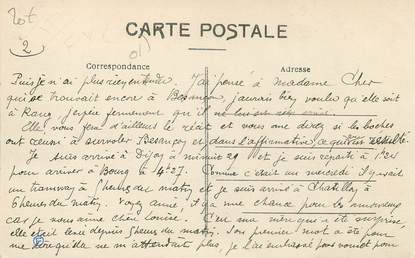 CARTE POSTALE
2
Correspondance
Adresse
Puis je n'ai plus rien entendu. J'ai pensé à Madame Cher
qui se trouvait encore à Besançon, j'aurais bien voulu qu'elle soit
à Rang j'espère fermement qu'il ne lui est
Elle vous fera d'ailleurs le récit et vous me direz si les boches
ont réussi à survoler Besançon et dans l'affirmative
Je suis arrivé à Dijon à minuit 29 et je suis reparti à 1h24
pour arriver à Bourg à 4h27. Comme c'était un mercredi il y avait
un tramway à 5 heures du matin et je suis arrivé à
6 heures du matin. Voyez ainsi il y a une chance pour les amoureux
car je vous aime chère Louise.
elle était levée depuis 5 heures du matin. Son premier mot a été pour
me dire qu'elle ne m'attendait plus, je l'ai embrassé pour vous et pour